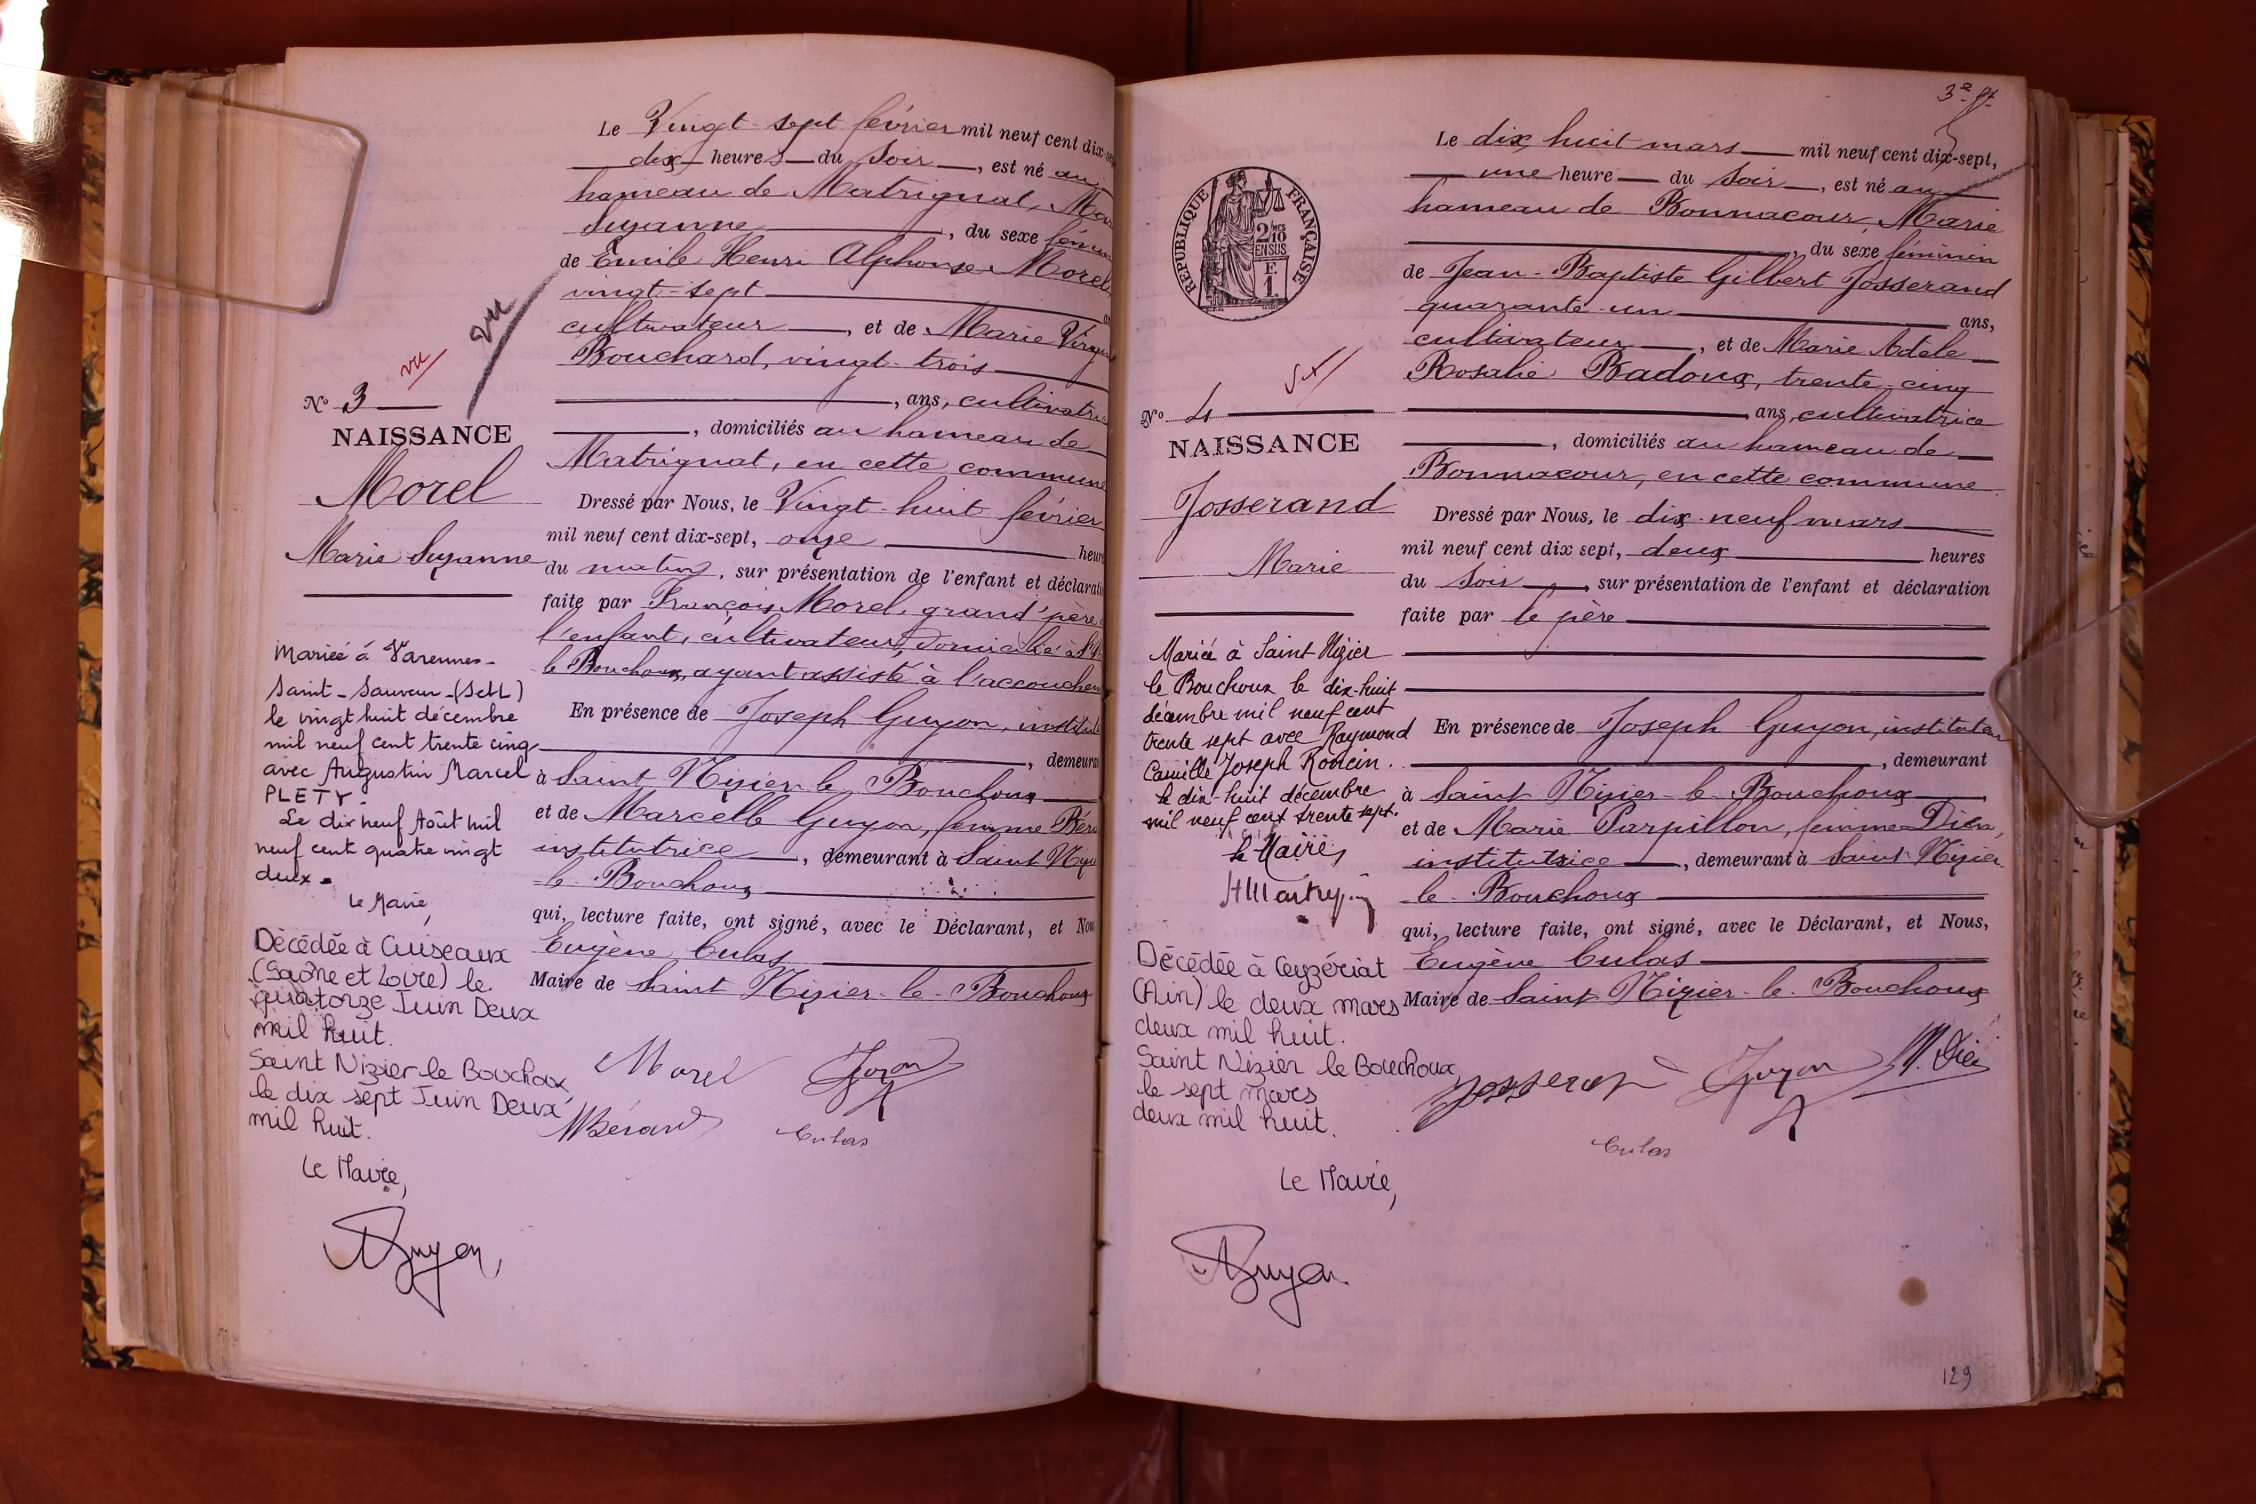 Le Vingt-sept février mil neuf cent dix-
dix heures du Soir, est né au
hameau de Matrignat, Mar
Suzanne, du sexe fémin
de Emile Henri Alphonse Morel
vingt-sept
cultivateur, et de Marie
Bouchard, vingt-trois
, ans, cultivatrice
, domiciliés au hameau de
Matrignat, en cette commune
Dressé par Nous, le Vingt-huit février
mil neuf cent dix-sept, onze heur
du matin, sur présentation de l'enfant et déclarati
faite par François Morel, grand'père
l'enfant, cultivateur, domicilié à
le Bouchoux, ayant assisté à l'accouchem
En présence de Joseph Guyon, institut
, demeura
à Saint Nizier-le-Bouchoux
et de Marcelle Guyon, femme Béra
institutrice, demeurant à Saint Nizi
le-Bouchoux
qui, lecture faite, ont signé, avec le Déclarant, et Nou
Eugène Culas
Maire de Saint Nizier-le-Bouchoux
Morel Guyon
MBérard Culas
vu
vu
N° 3
NAISSANCE
Morel
Marie Suzanne
Mariée à Varennes-
Saint-Sauveur-(S et L)
le vingt huit décembre
mil neuf cent trente cinq
avec Augustin Marcel
PLETY.
Le dix neuf Août mil
neuf cent quatre vingt
deux.
Le Maire,
Décédée à Cuiseaux
(Saône et Loire) le
quatorze Juin Deux
mil huit.
Saint Nizier le Bouchoux
le dix sept Juin Deux
mil huit.
Le Maire,
Guyon
3e ft
Le dix huit mars mil neuf cent dix-sept,
une heure du Soir, est né au
hameau de Bonnacour, Marie
, du sexe féminin
de Jean-Baptiste Gilbert Josserand
quarante-un ans,
cultivateur, et de Marie Adèle
Rosalie Badoux, trente-cinq
ans, cultivatrice
, domiciliés au hameau de
Bonnacour, en cette commune
Dressé par Nous, le dix-neuf mars
mil neuf cent dix sept, deux heures
du Soir, sur présentation de l'enfant et déclaration
faite par le père
En présence de Joseph Guyon, instituteur
, demeurant
à Saint Nizier-le-Bouchoux
et de Marie Parpillon, femme Dien,
institutrice, demeurant à Saint-Nizier-
le-Bouchoux
qui, lecture faite, ont signé, avec le Déclarant, et Nous,
Eugène Culas
Maire de Saint Nizier-le-Bouchoux
Josserand Guyon M. Dien
Culas
RÉPUBLIQUE FRANÇAISE
2/10
EN SUS
F.
1.
N° 4
NAISSANCE
Josserand
Marie
Mariée à Saint Nizier
le Bouchoux le dix-huit
décembre mil neuf cent
trente sept avec Raymond
Camille Joseph Roncin.
le dix-huit décembre
mil neuf cent trente sept.
Le Maire,
Décédée à Ceyzériat
(Ain) le deux mars
deux mil huit.
Saint Nizier le Bouchoux
le sept mars
deux mil huit.
Le Maire,
Guyon
129